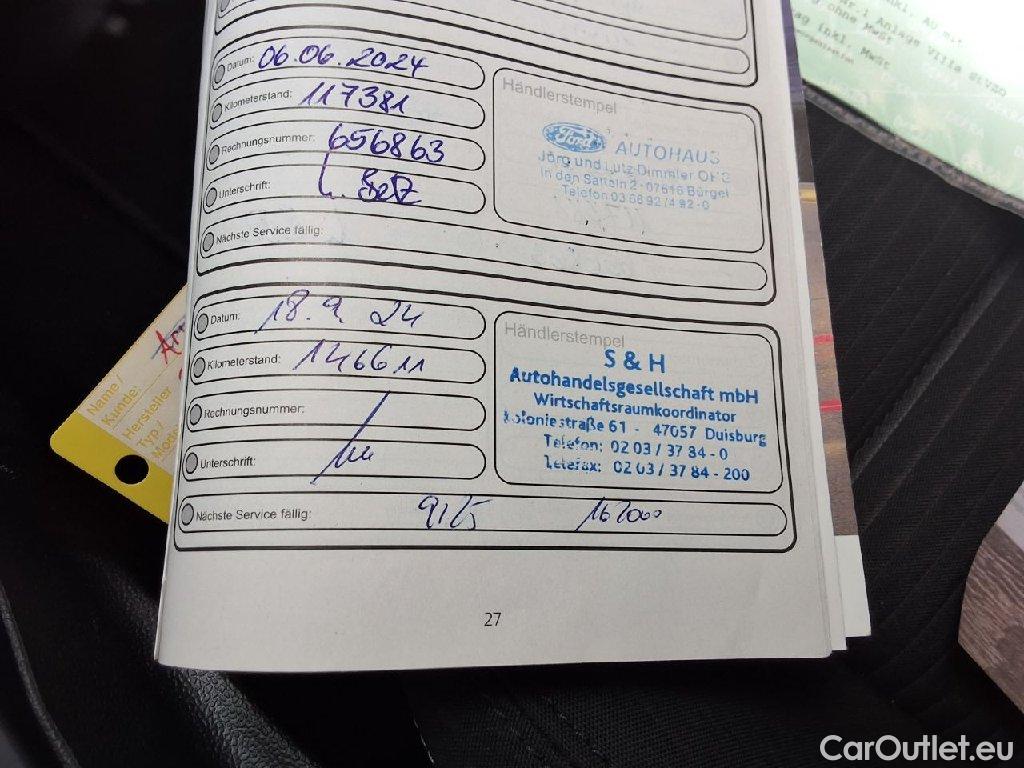 Datum: 06.06.2024
Kilometerstand: 117381
Rechnungsnummer: 656863
Unterschrift:
Nächste Service fällig:
Händlerstempel
Ford AUTOHAUS
Jörg und Lutz Dimmler OHG
In den Satteln 2 - 07616 Bürgel
Telefon 03 66 92 / 4 92 - 0
Datum: 18.9.24
Kilometerstand: 146611
Rechnungsnummer:
Unterschrift:
Nächste Service fällig: 9/25 162000
Händlerstempel
S & H
Autohandelsgesellschaft mbH
Wirtschaftsraumkoordinator
Koloniestraße 61 - 47057 Duisburg
Telefon: 02 03 / 37 84 - 0
Telefax: 02 03 / 37 84 - 200
27
Name
Kunde:
Hersteller
Typ /
inkl. AU mit
Anlage VIIIa StVZO
ohne MwSt
inkl. MwSt
CarOutlet.eu